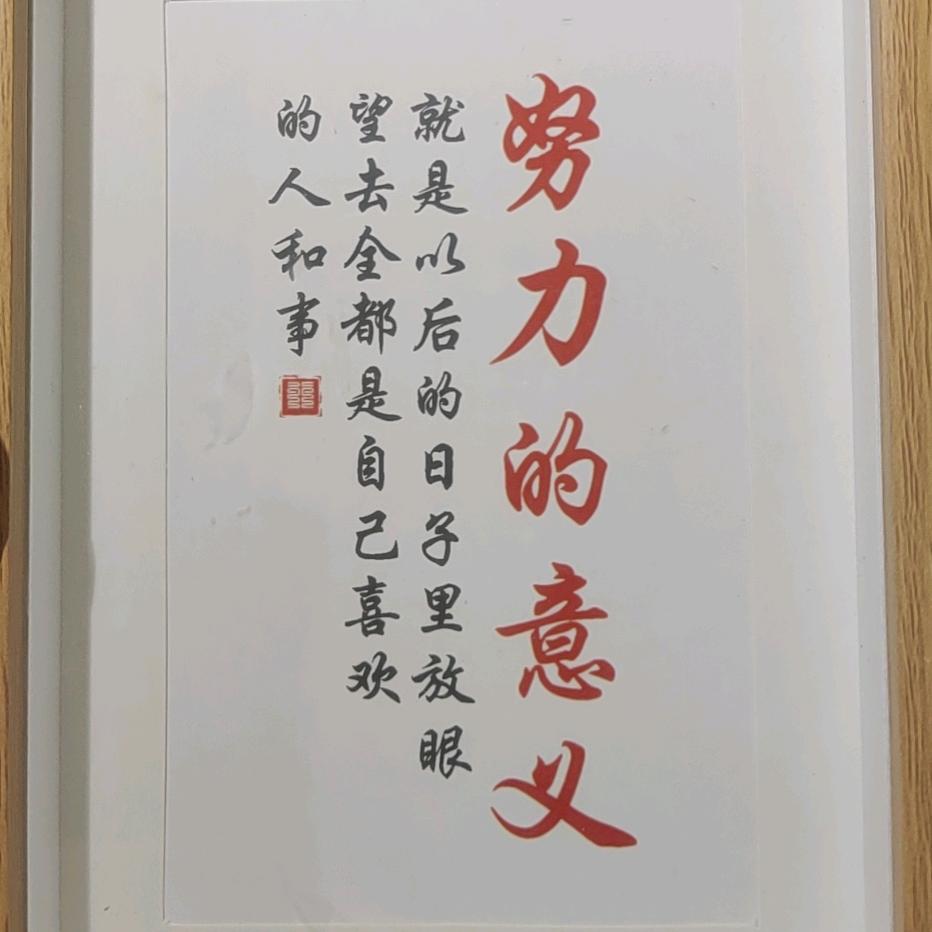 努力的意义
就是以后的日子里放眼
望去全都是自己喜欢
的人和事